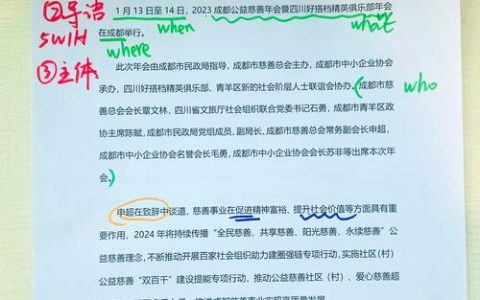 ②导语
5W1H
③主体
1 月 13 日至 14 日，2023 成都公益慈善年会暨四川好搭档精英俱乐部年会
when
what
在成都举行。
where
此次年会由成都市民政局指导，成都市慈善总会主办，成都市中小企业协会
承办，四川好搭档精英俱乐部、青羊区新的社会阶层人士联谊会协办。(成都市慈
who
善总会会长覃文林，四川省文旅厅社会组织联合党委书记石勇，成都市青羊区政
协主席陈赋，成都市民政局党组成员、副局长，成都市慈善总会常务副会长申超，
成都市中小企业协会名誉会长毛勇，成都市中小企业协会会长苏非等出席本次年
会。)
申超在致辞中谈道，慈善事业在促进精神富裕、提升社会价值等方面具有重
要作用，2024 年将持续传播“全民慈善、共享慈善、阳光慈善、永续慈善”公
益慈善理念，不断推动开展百家社会组织助力建圈强链专项行动，实施社区（村）
公益慈善“双百千”建设提能专项行动，推动公益慈善社区（村）、爱心慈善超